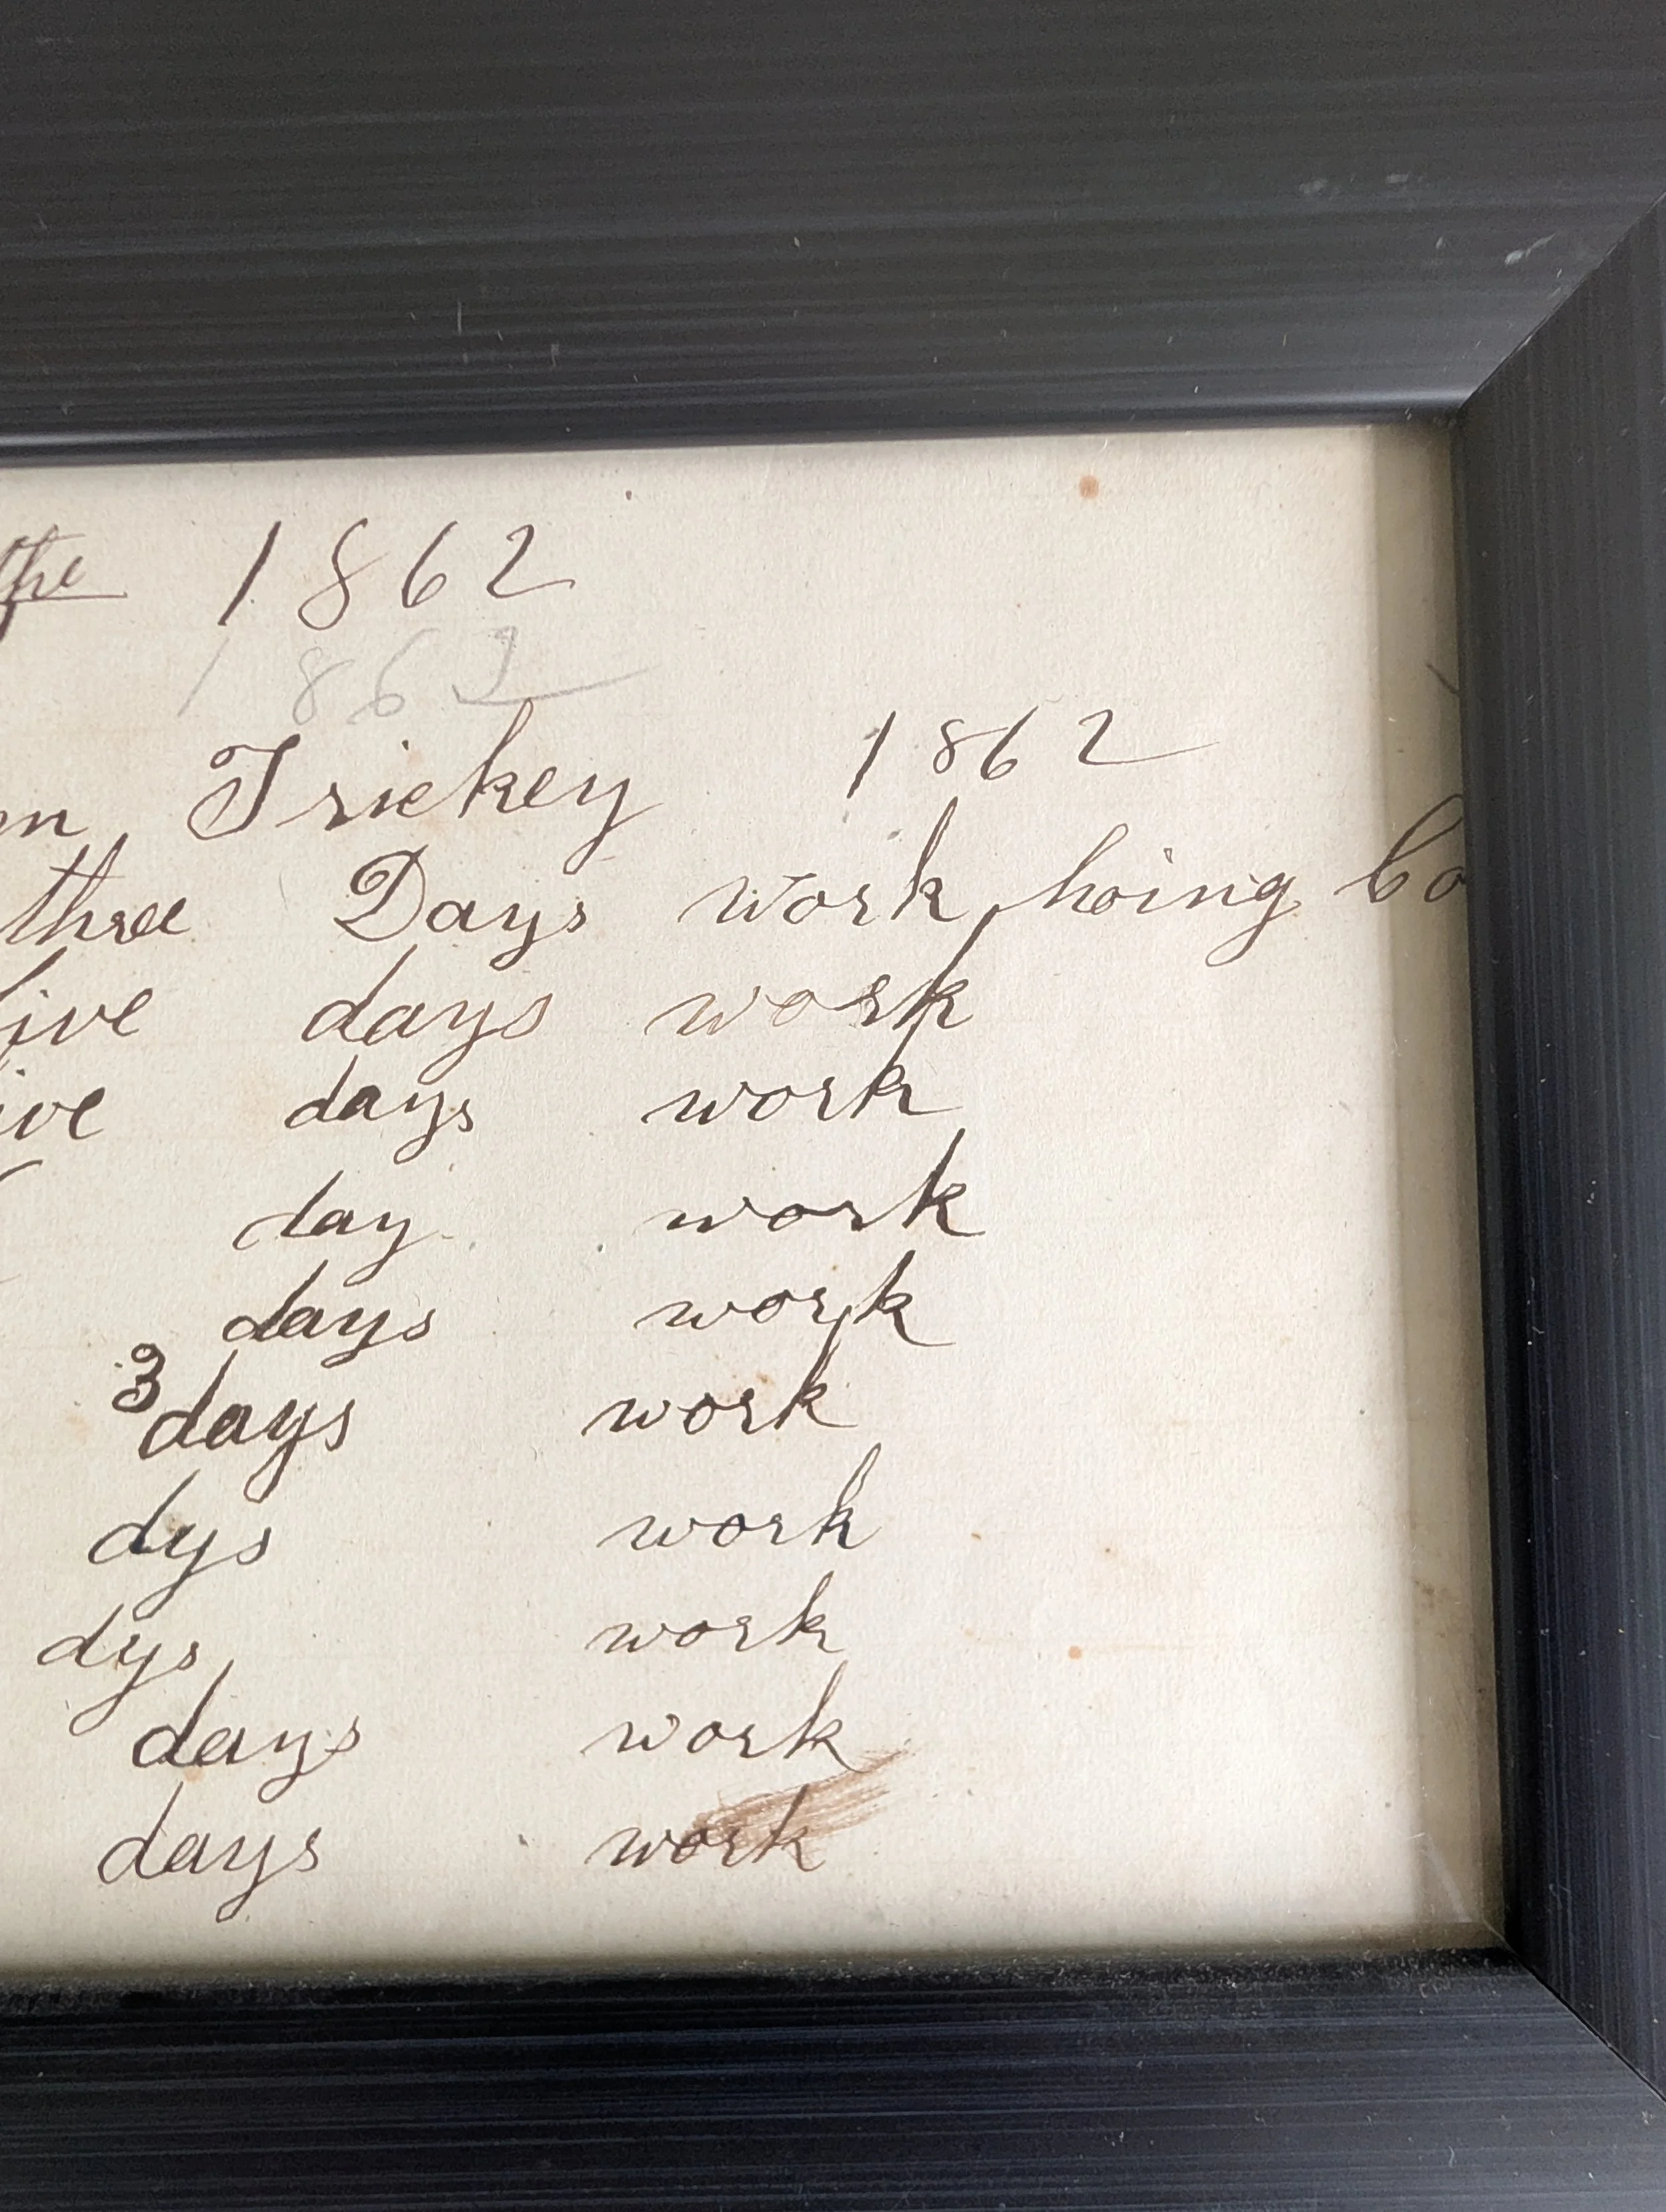 the 1862
1862
Trickey 1862
three Days work hoing
days work
days work
day work
days work
3
days work
dys work
dys work
days work
days work